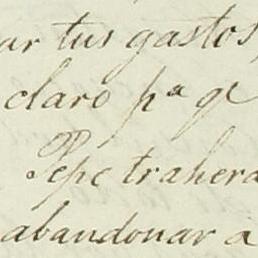 ar tus gastos,
claro pª qe
Pepe trahera
abandonar a